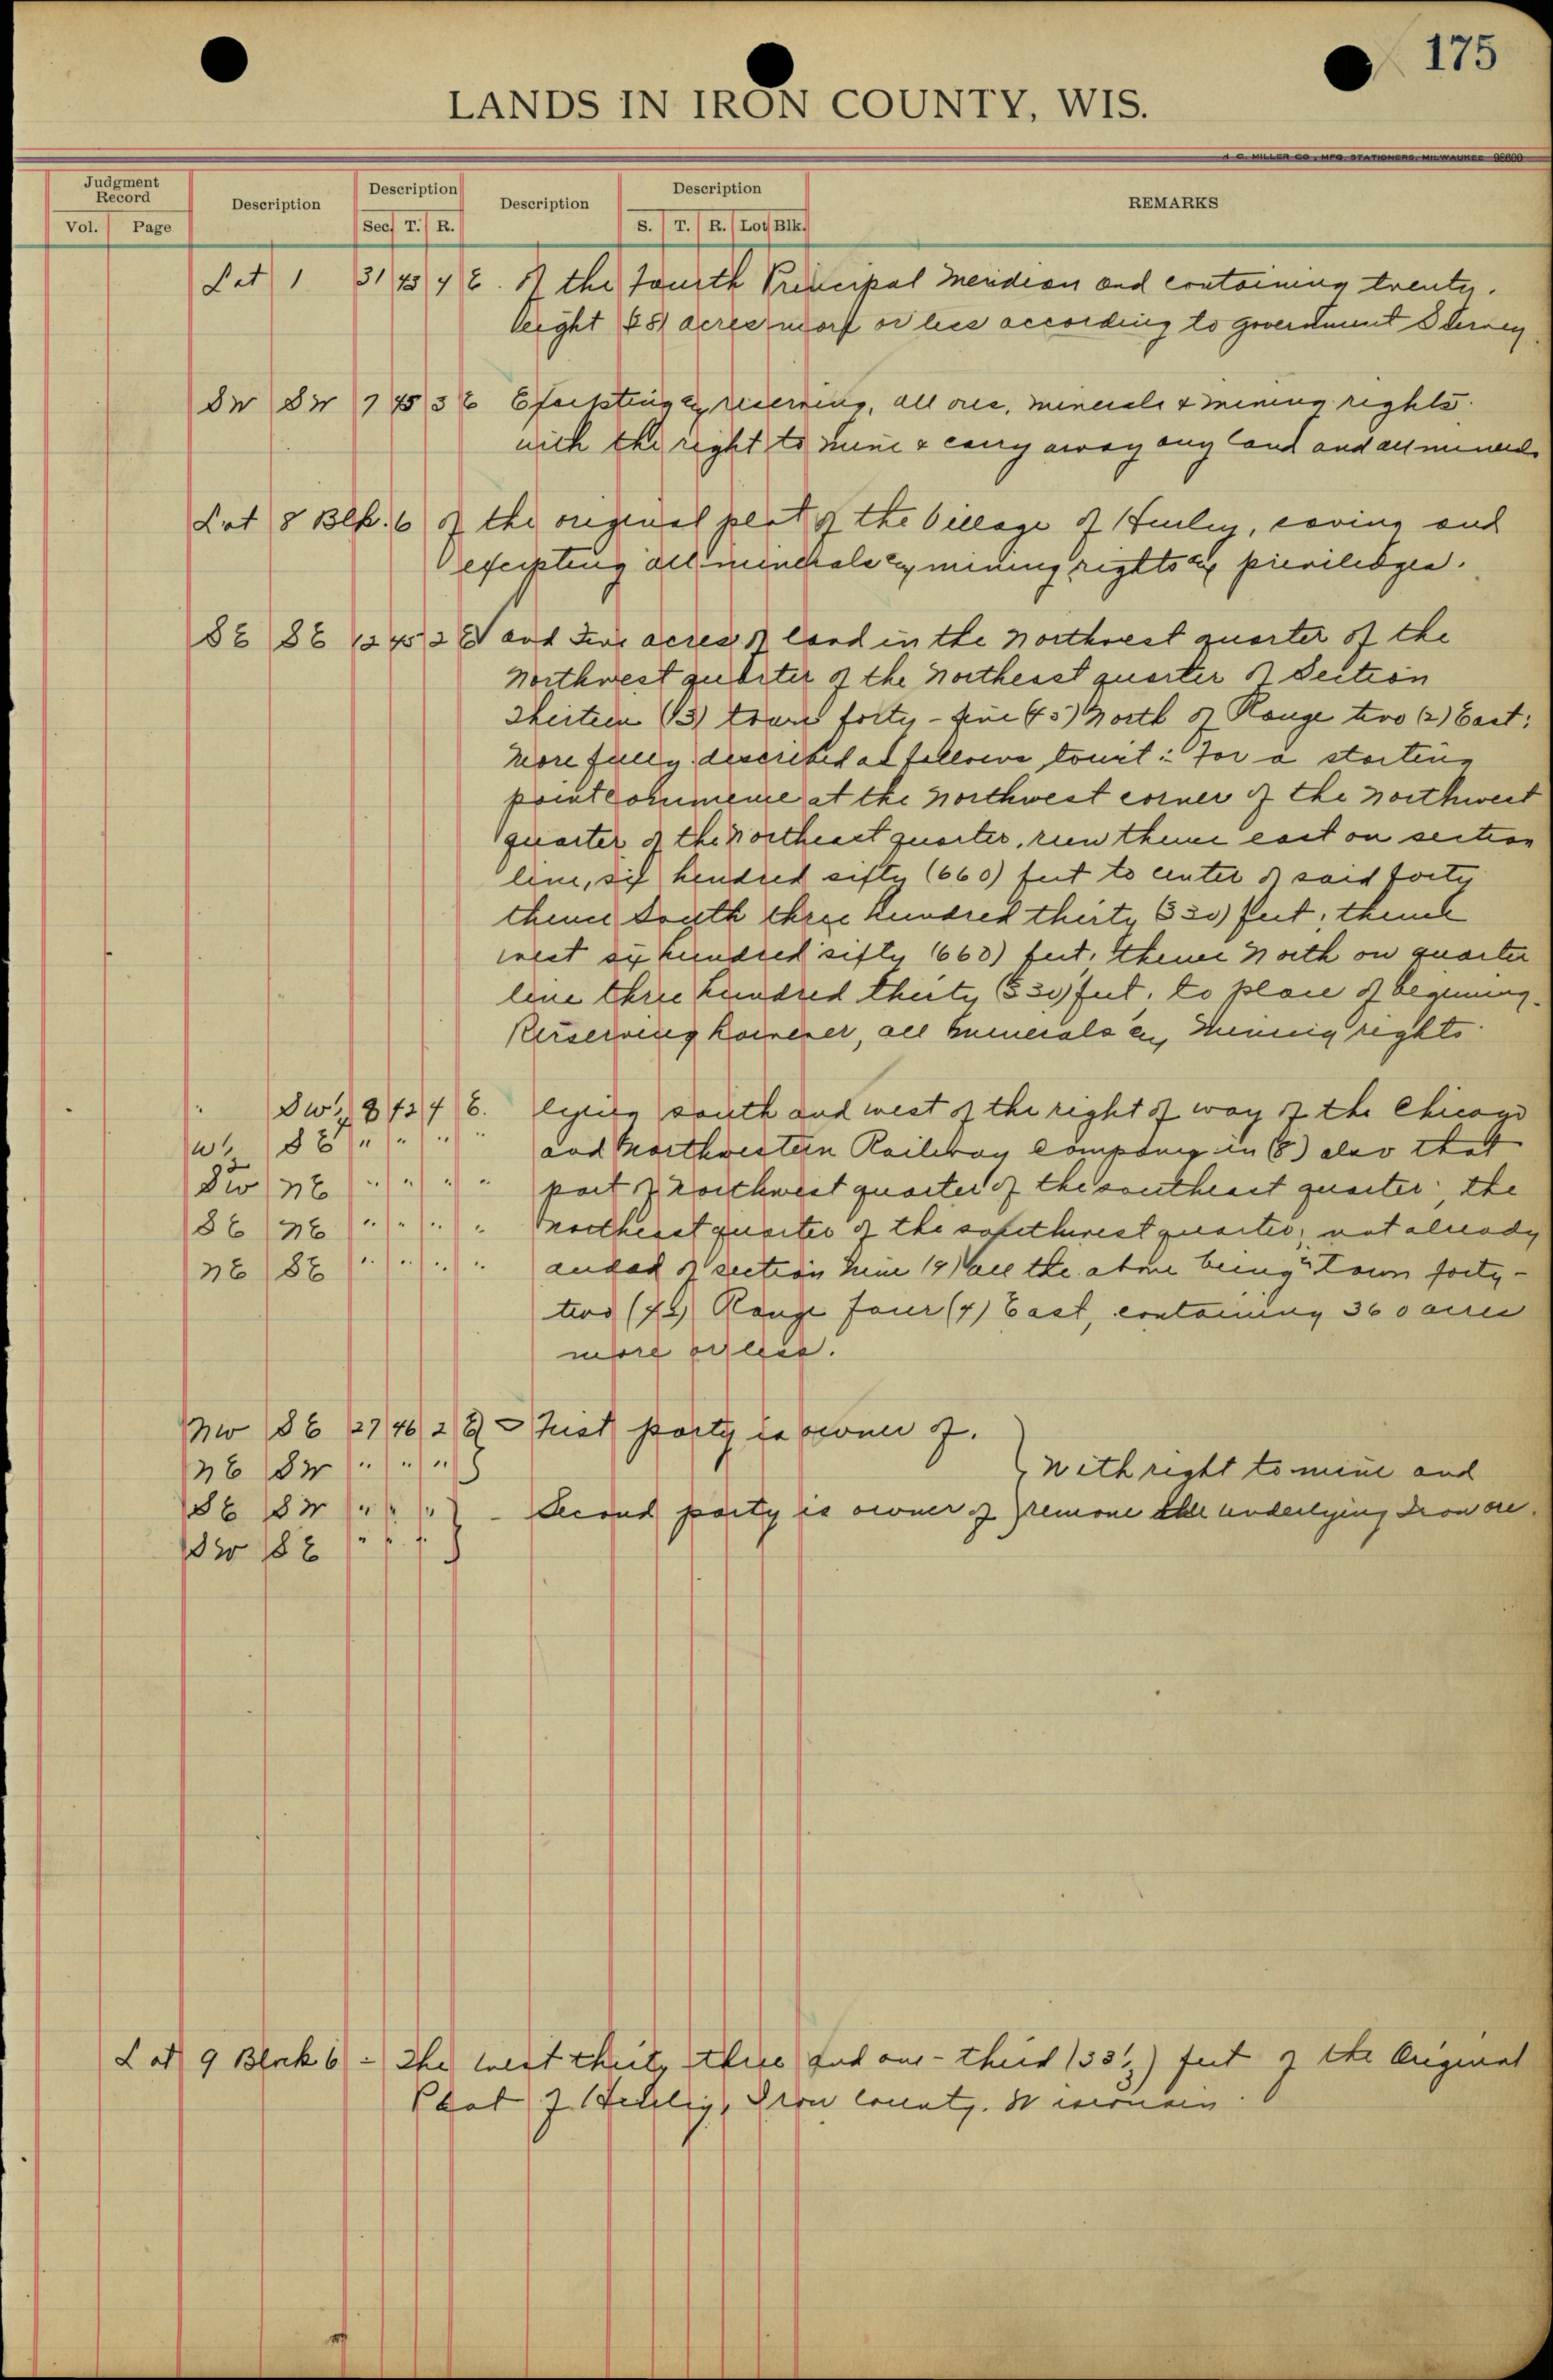 175
LANDS IN IRON COUNTY, WIS.
A. C. MILLER CO., MFG. STATIONERS, MILWAUKEE 98600
Judgment Record
Vol. Page
Description
Description
Sec. T. R.
Description
Description
S. T. R. Lot Blk.
REMARKS
Lot 1 31 45 4 E. of the Fourth Principal Meridian and containing twenty.
eight 28) acres more or less according to government Survey.
SW SW 7 45 3 E Excepting & reserving, all ores, minerals & mining rights.
with the right to mine & carry away any land and all minerals
Lot 8 Blk. 6 of the original plat of the Village of Hurley, saving and
excepting all minerals & mining rights & priviledges.
SE SE 12 45 2 E and Five acres of land in the Northwest quarter of the
Northwest quarter of the Northeast quarter of Section
Thirteen (13) town forty-five 45) North of Range two (2) East;
More fully described as follows towit: For a starting
point commence at the Northwest corner of the Northwest
quarter of the Northeast quarter, run thence east on section
line, six hundred sifty (660) feet to center of said forty
thence South three hundred thirty 330) feet; thence
west six hundred sifty (660) feet, thence North on quarter
line three hundred thirty (330) feet, to place of beginning.
Reserving however, all minerals & mining rights.
SW¼ 8 42 4 E. lying south and west of the right of way of the Chicago
W½ SE " " " " and Northwestern Railway Company in (8) also that
SW NE " " " " part of Northwest quarter of the southeast quarter; the
SE NE " " " " Northeast quarter of the southwest quarter, not already
NE SE " " " " of section nine (9) all the above being in Town forty-
two (42) Range four (4) East, containing 360 acres
more or less.
NW SE 27 46 2 E} - First party is owner of.
NE SW " " "
With right to mine and
SE SW " " " } - Second party is owner of remove the underlying Iron ore.
SW SE " " "
Lot 9 Block 6 - The West thirty three and one-third (33⅓) feet of the Original
Plat of Hurley, Iron County. Wisconsin.